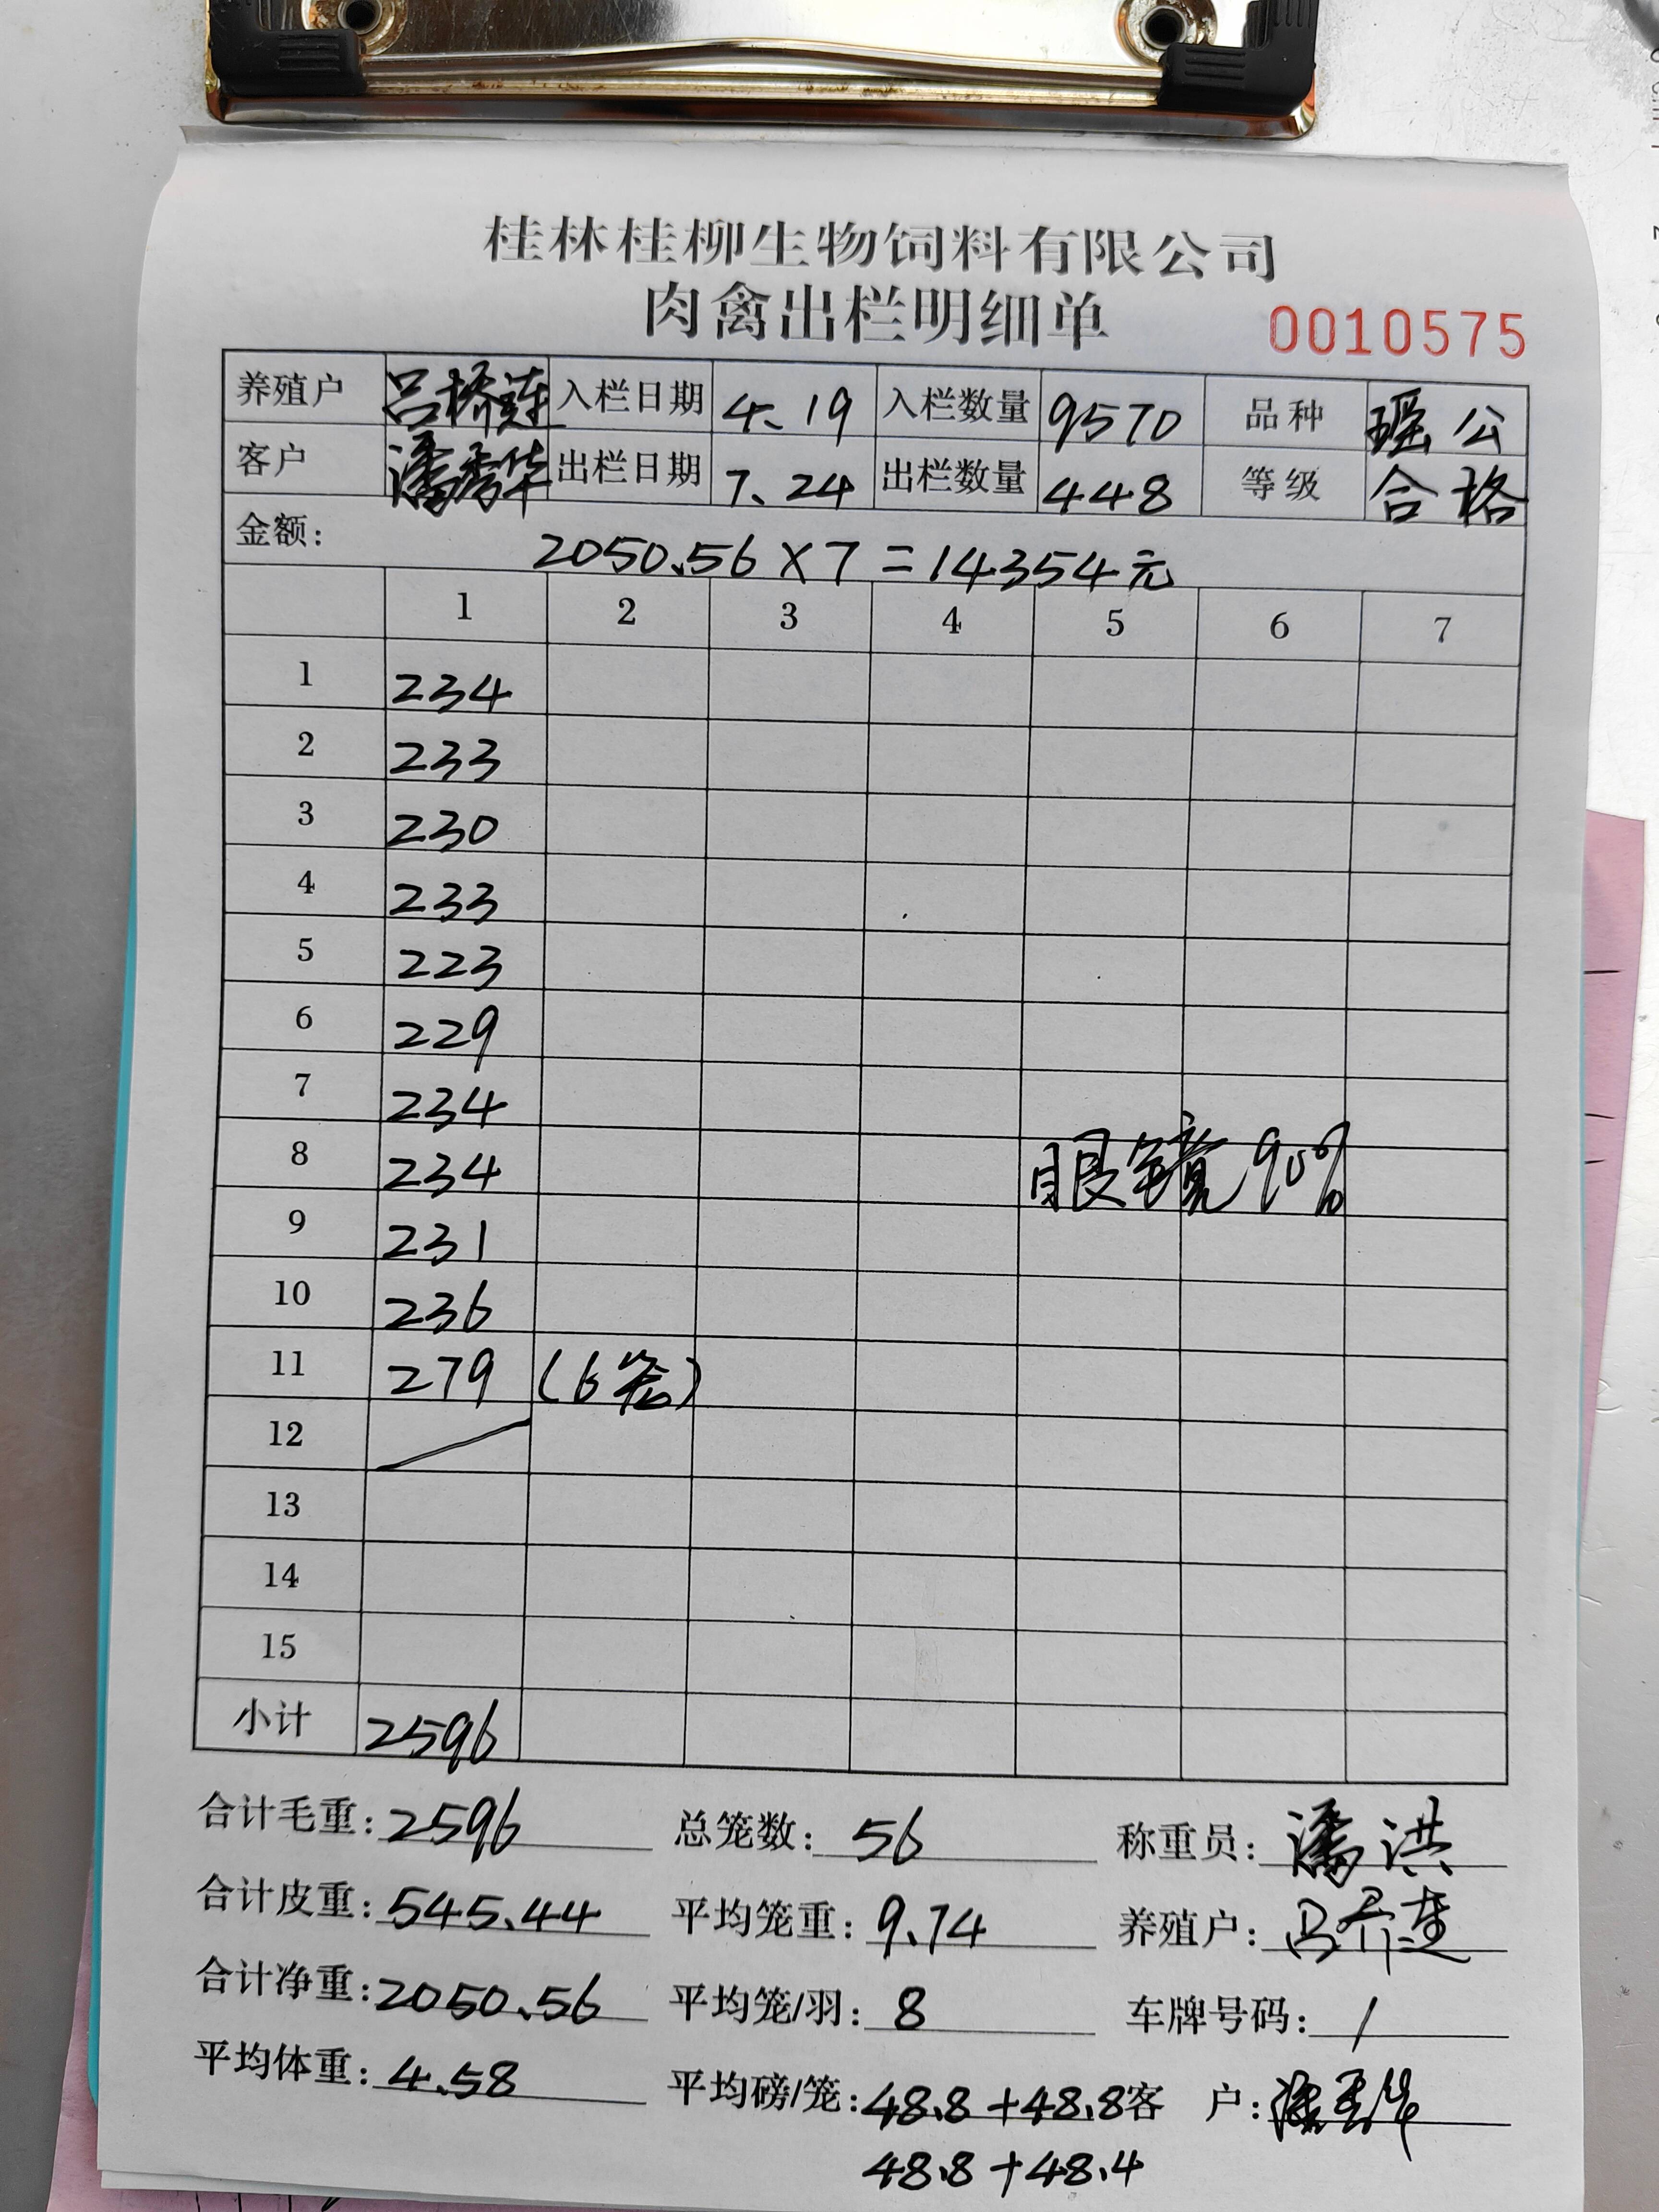 桂林桂柳生物饲料有限公司
肉禽出栏明细单 0010575
养殖户 吕桥连 入栏日期 4.19 入栏数量 9570 品种 瑶公
客户 潘秀华 出栏日期 7.24 出栏数量 448 等级 合格
金额: 2050.56×7=14354元
1 2 3 4 5 6 7
1 234
2 233
3 230
4 233
5 223
6 229
7 234
8 234 眼镜90%
9 231
10 236
11 279 (6笼)
12
13
14
15
小计 2596
合计毛重: 2596 总笼数: 56 称重员: 潘洪
合计皮重: 545.44 平均笼重: 9.74 养殖户: 吕乔连
合计净重: 2050.56 平均笼/羽: 8 车牌号码: /
平均体重: 4.58 平均磅/笼: 48.8+48.8 客 户:
48.8+48.4